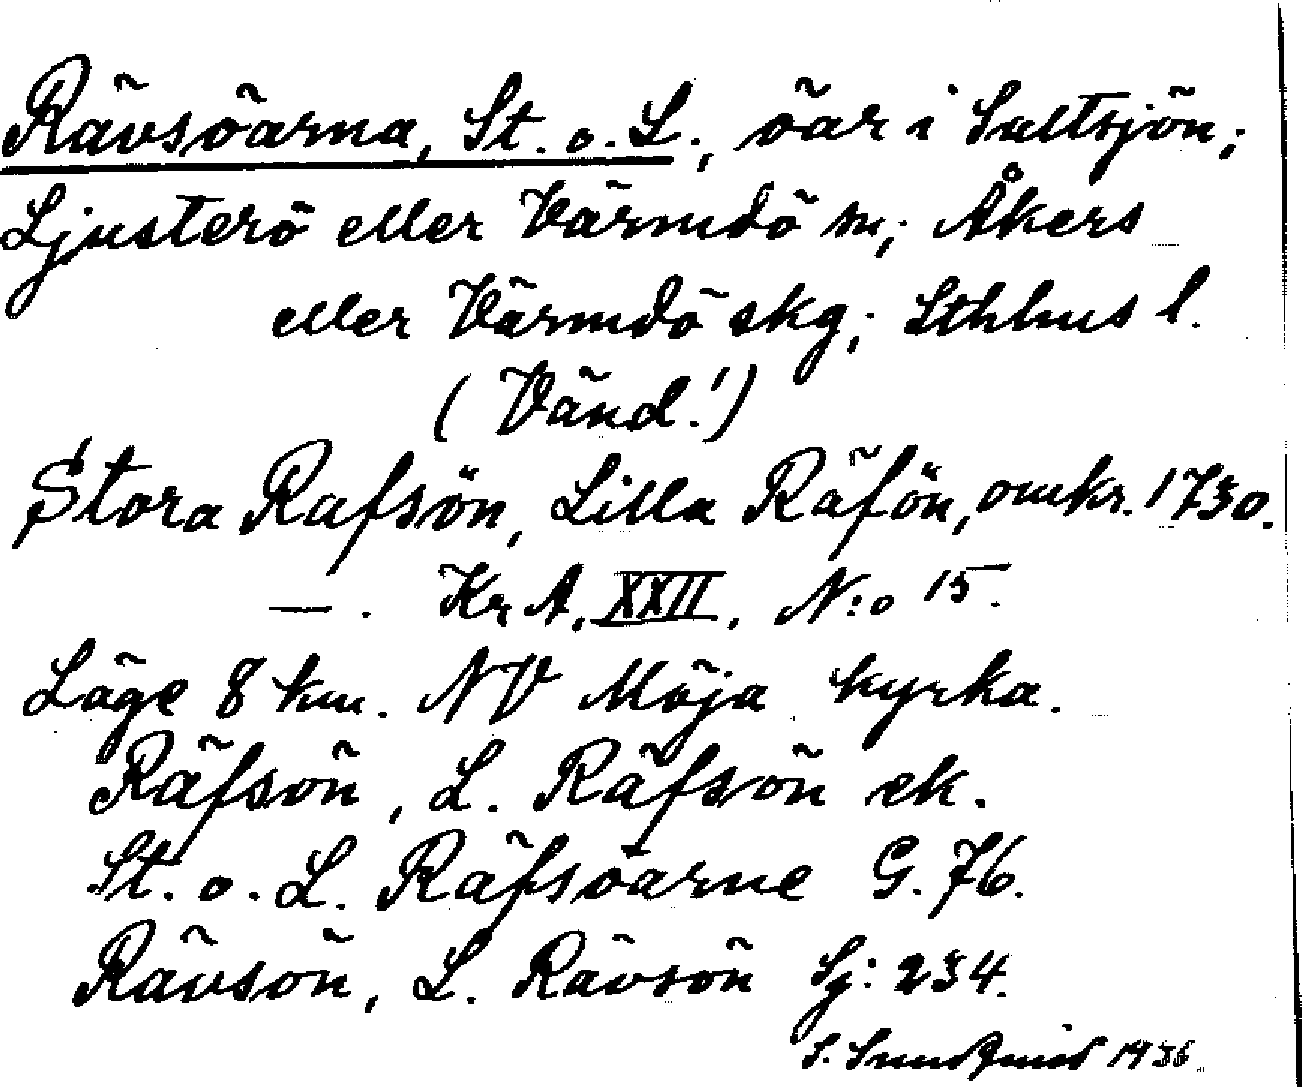 Rävsöarna, St. o. L., öar i Saltsjön;
Ljusterö eller Värmdö sn; Åkers
eller Värmdö skg; Sthlms l.
(Vänd!)
Stora Rafsön, Lilla Räfön, omkr. 1730.
—. Kr A. XXII. N:o 15.
Läge 8 km. NV Möja kyrka.
Räfsön, L. Räfsön ek.
St. o. L. Räfsöarne G. 76.
Rävsön, L. Rävsön Sj: 234.
S. Sundqvist 1936